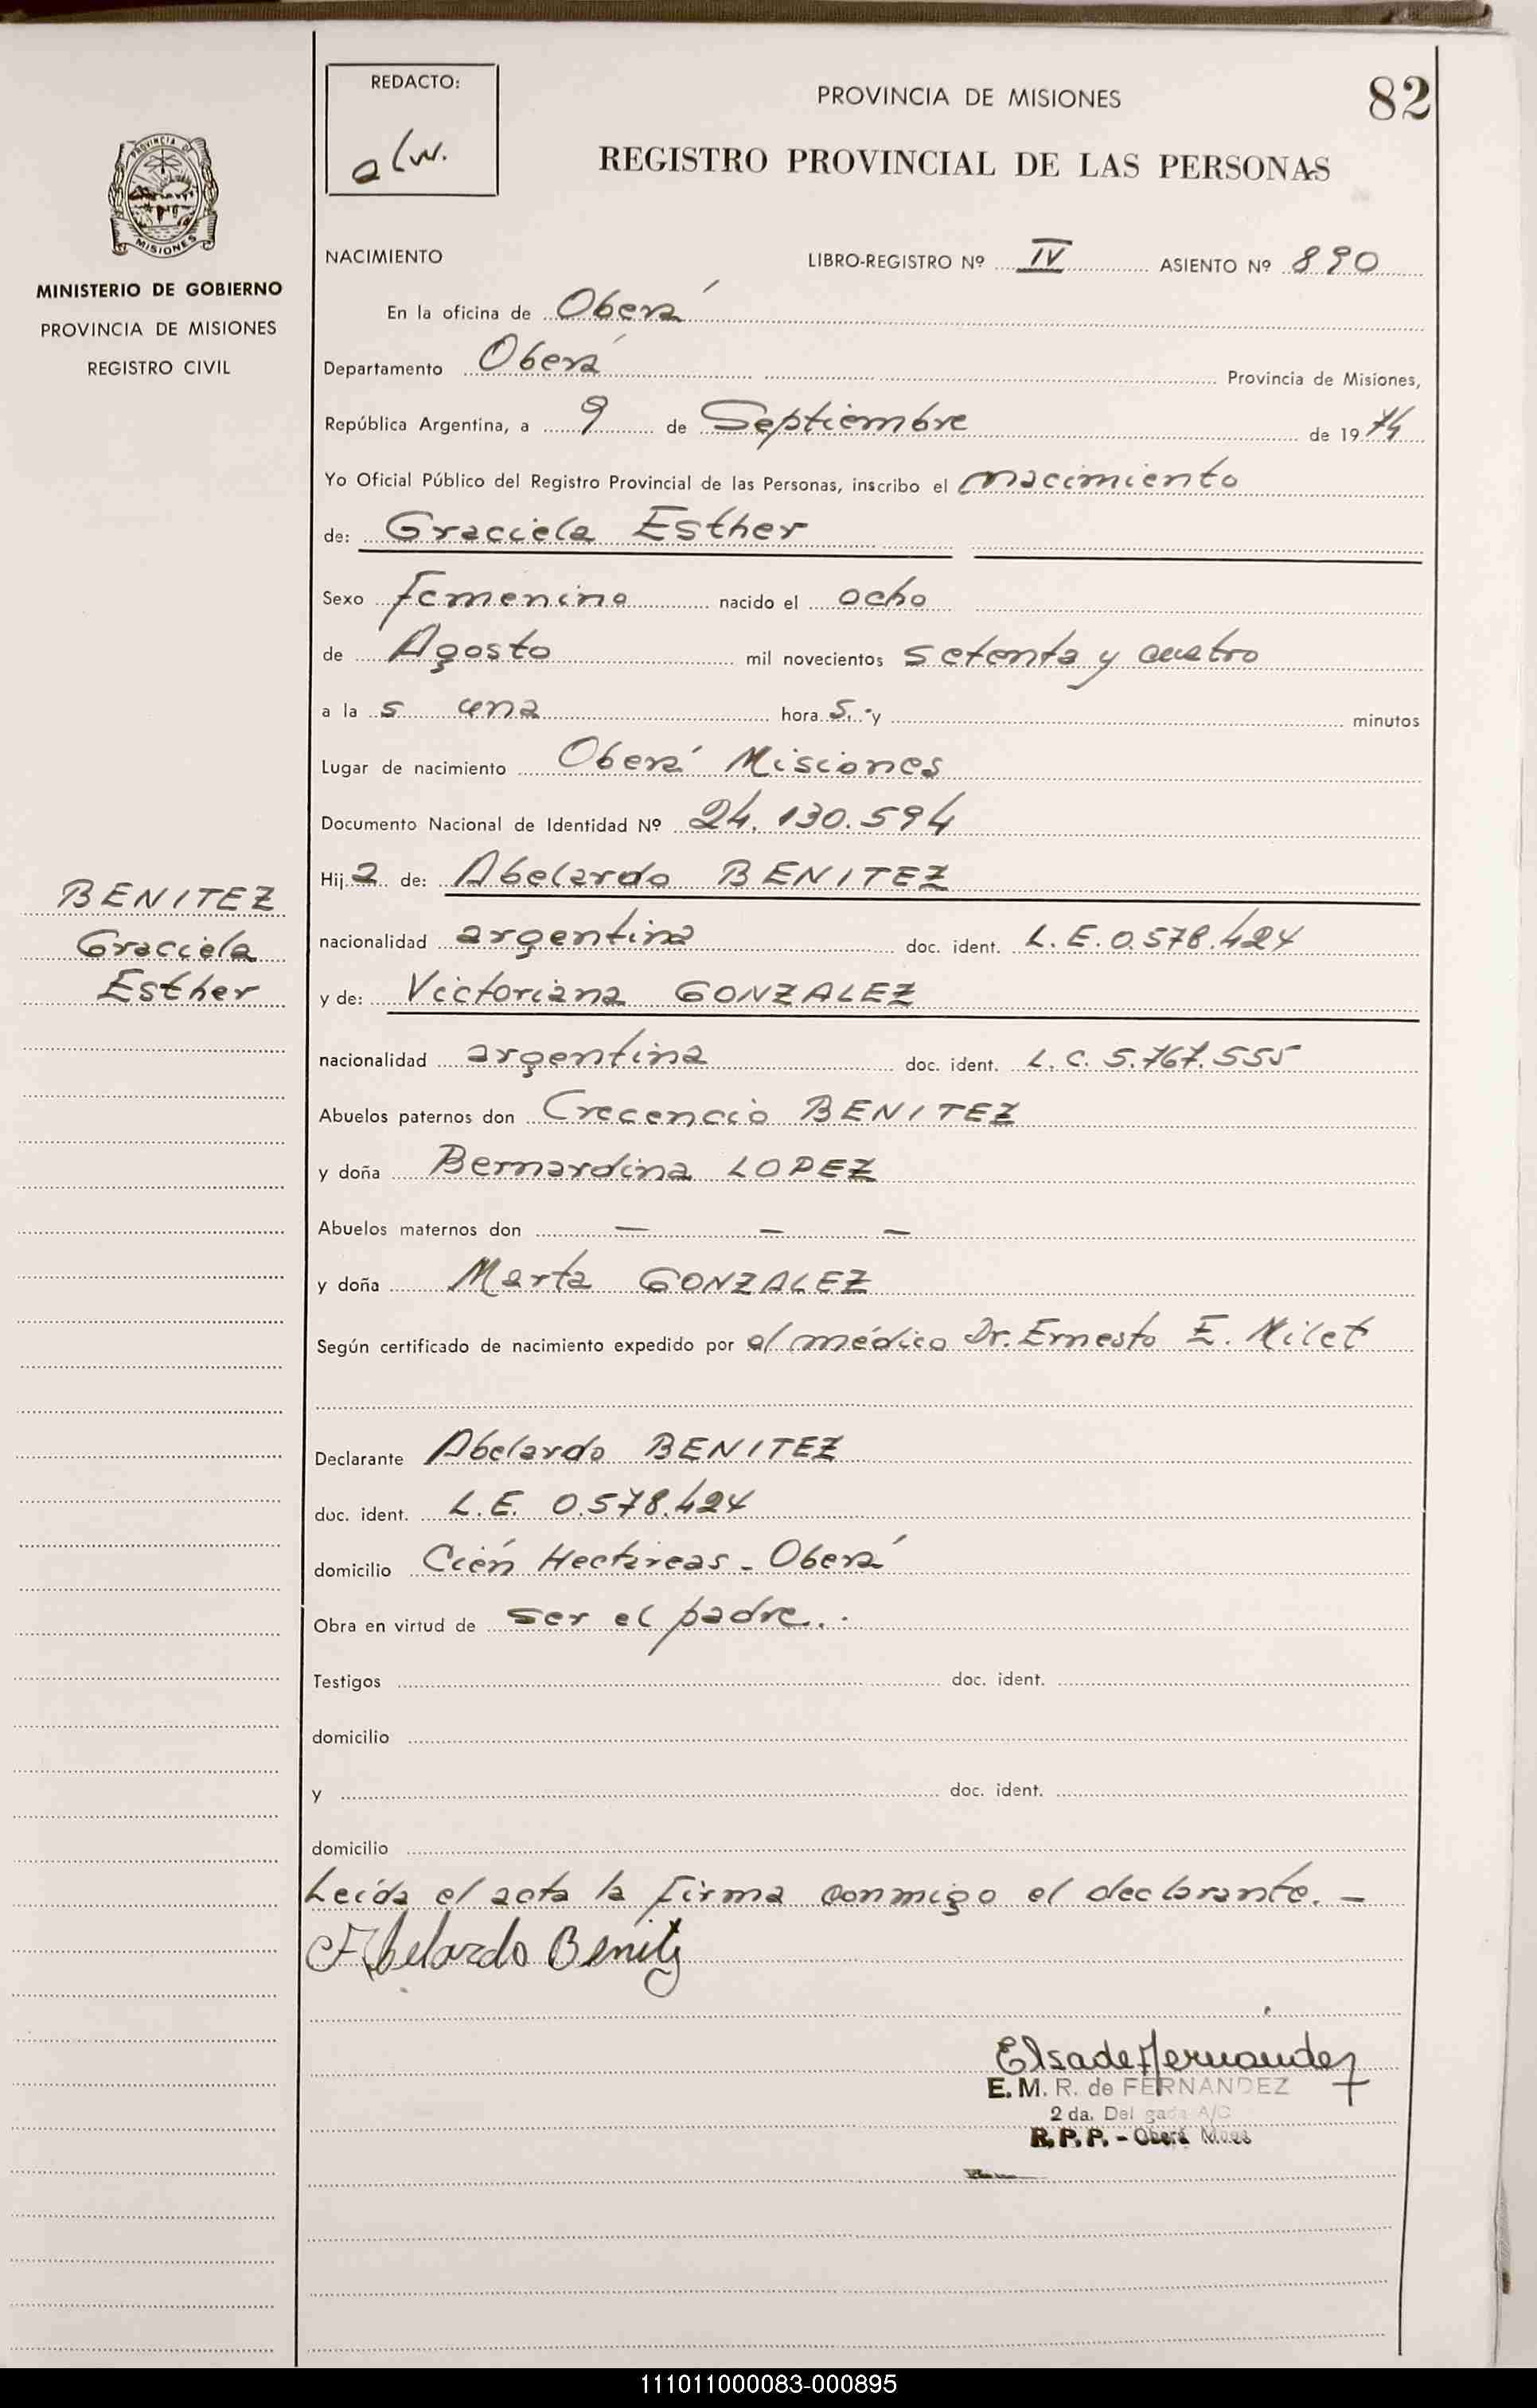 REDACTO:
alw.
PROVINCIA DE MISIONES
82
REGISTRO PROVINCIAL DE LAS PERSONAS
PROVINCIA DE
MISIONES
MINISTERIO DE GOBIERNO
PROVINCIA DE MISIONES
REGISTRO CIVIL
NACIMIENTO LIBRO-REGISTRO Nº IV ASIENTO Nº 890
En la oficina de Oberá
Departamento Oberá Provincia de Misiones,
República Argentina, a 9 de Septiembre de 1974
Yo Oficial Público del Registro Provincial de las Personas, inscribo el nacimiento
de: Graciela Esther
Sexo femenino nacido el ocho
de Agosto mil novecientos setenta y cuatro
a la s una hora s. y minutos
Lugar de nacimiento Oberá Misiones
Documento Nacional de Identidad Nº 24.130.594
Hija de: Abelardo BENITEZ
nacionalidad argentina doc. ident. L.E. 0.578.424
y de: Victoriana GONZALEZ
nacionalidad argentina doc. ident. L.C. 5.767.555
Abuelos paternos don Crecencio BENITEZ
y doña Bernardina LOPEZ
Abuelos maternos don — — —
y doña Marta GONZALEZ
Según certificado de nacimiento expedido por el médico Dr. Ernesto E. Milet
Declarante Abelardo BENITEZ
doc. ident. L.E. 0.578.424
domicilio Cién Hectáreas - Oberá
Obra en virtud de ser el padre..
Testigos doc. ident.
domicilio
y doc. ident.
domicilio
Leída el acta la firma conmigo el declarante. —
Abelardo Benitz
BENITEZ
Graciela
Esther
Elsa de Fernandez
E. M. R. de FERNANDEZ
2 da. Delegada A/C
R. P. P. - Oberá Mnes
111011000083-000895